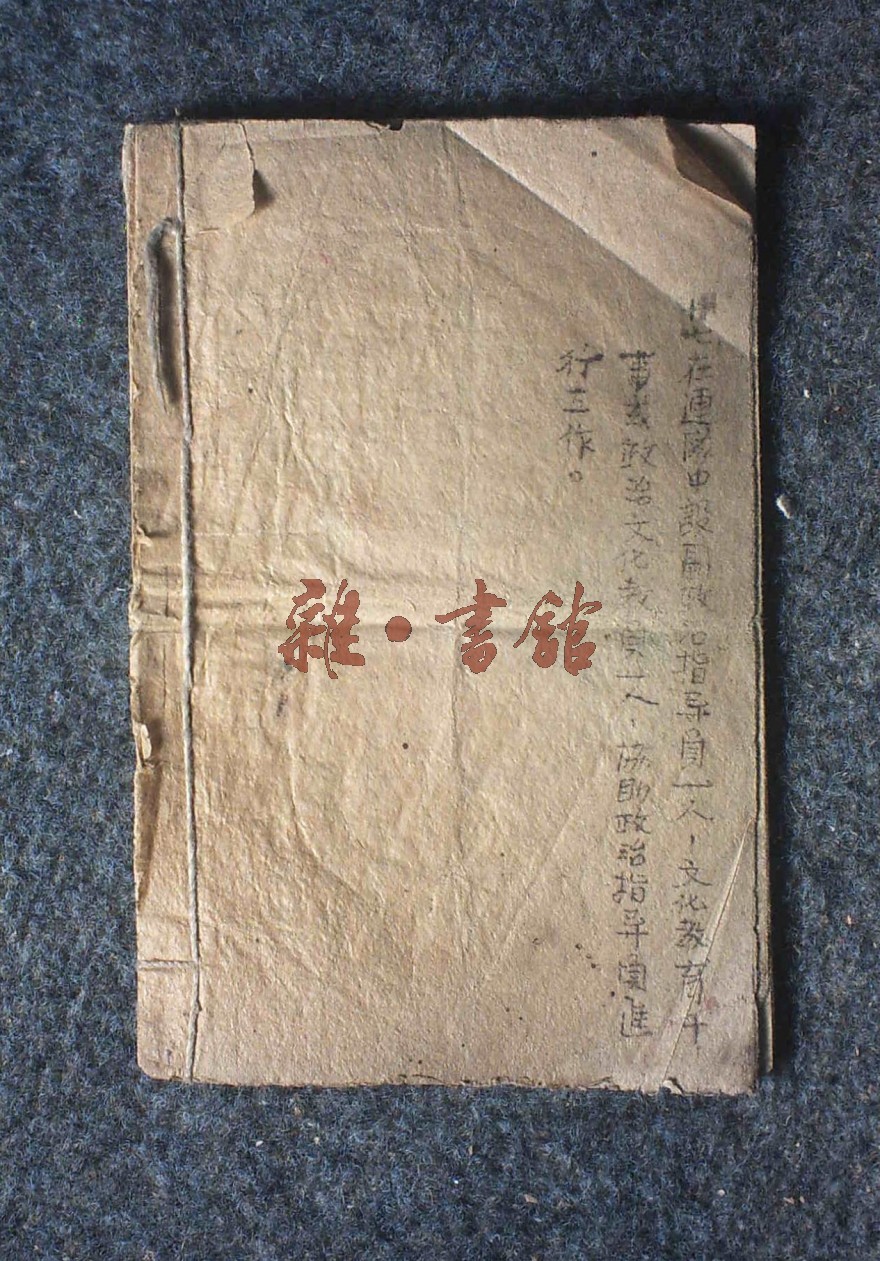 在連隊中設副政治指导員一人，文化教育干
事或政治文化教員一人，協助政治指导員進
行工作。
雜·書館